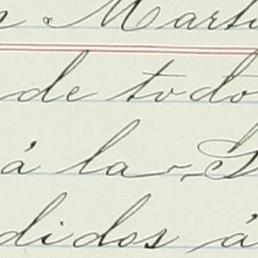 n Marti
de todo
á la S
didos á